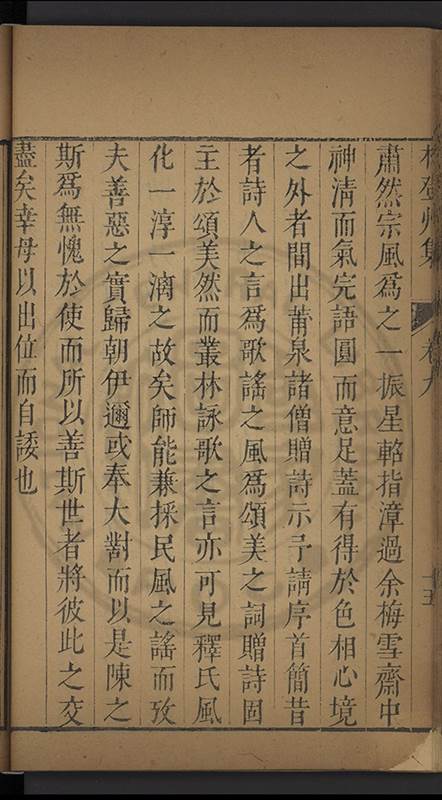 林登州集 卷九 十五
肅然宗風爲之一振星軺指漳過余梅雪齋中
神清而氣完語圓而意足蓋有得於色相心境
之外者間出莆泉諸僧贈詩示予請序首簡昔
者詩人之言爲歌謠之風爲頌美之詞贈詩固
主於頌美然而叢林詠歌之言亦可見釋氏風
化一淳一漓之故矣師能兼採民風之謠而攷
夫善惡之實歸朝伊邇或奉大對而以是陳之
斯爲無愧於使而所以善斯世者將彼此之交
盡矣幸毋以出位而自諉也